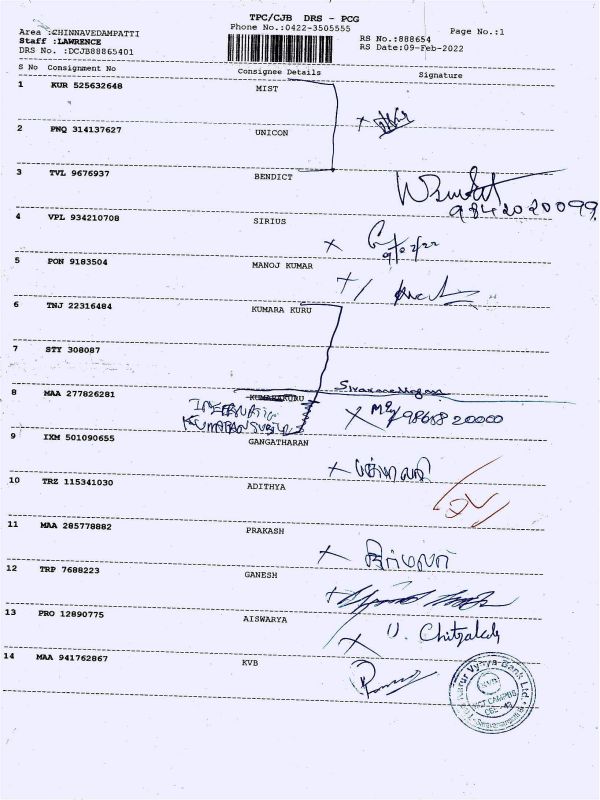 TPC/CJB DRS - PCG
Phone No.:0422-3505555
Area :CHINNAVEDAMPATTI
Staff :LAWRENCE
DRS No. :DCJB88865401
RS No.:888654
RS Date:09-Feb-2022
Page No.:1
S No Consignment No Consignee Details Signature
1 KUR 525632648 MIST
2 PNQ 314137627 UNICON
3 TVL 9676937 BENDICT
9842020099
4 VPL 934210708 SIRIUS
9/02/22
5 PON 9183504 MANOJ KUMAR
6 TNJ 22316484 KUMARA KURU
7 STY 308087
8 MAA 277826281 KUMARAKURU
98658 20000
9 IXM 501090655 GANGATHARAN
10 TRZ 115341030 ADITHYA
11 MAA 285778882 PRAKASH
12 TRP 7688223 GANESH
13 PRO 12890775 AISWARYA
14 MAA 941762867 KVB